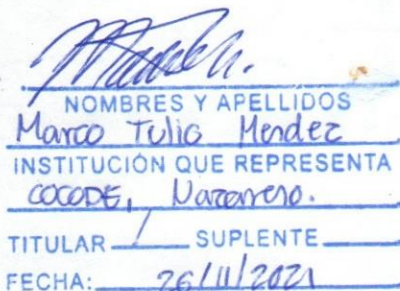 NOMBRES Y APELLIDOS
Marco Tulio Mendez
INSTITUCIÓN QUE REPRESENTA
COCODE, Nazareno.
TITULAR / SUPLENTE
FECHA: 26/11/2021